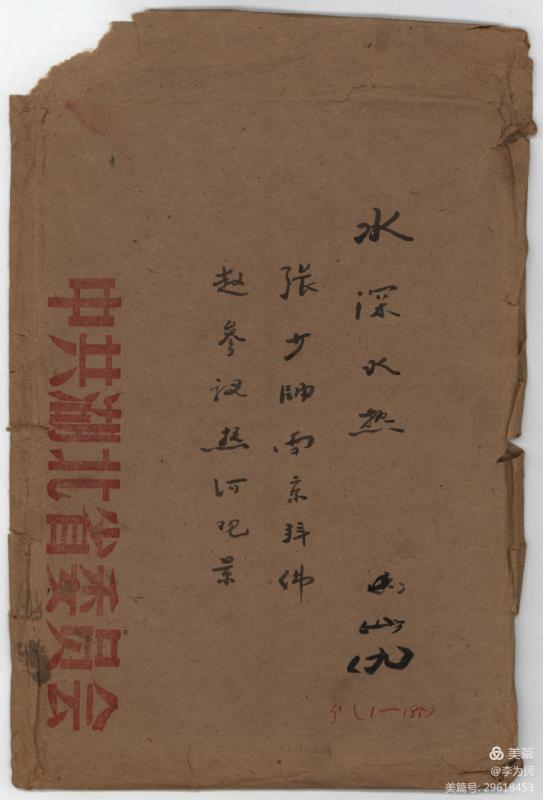 水深水热
山(九)
張少帥南京拜佛
赵參议热河观景
(1—185)
中共湖北省委员会
美篇
@李为民
美篇号: 29618453